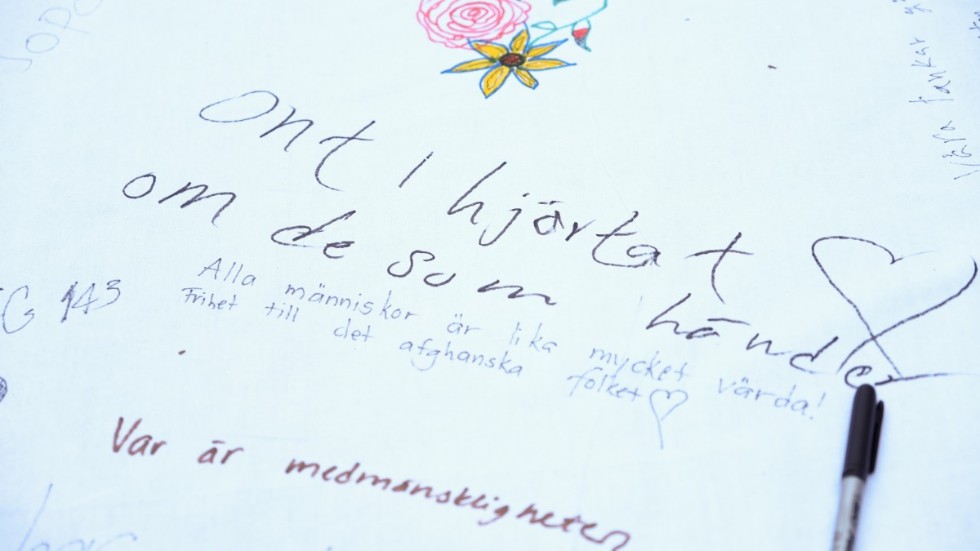 Ont i hjärtat
om de som händer
G 143
Alla människor är lika mycket värda!
Frihet till det afghanska folket
Var är medmänskligheten